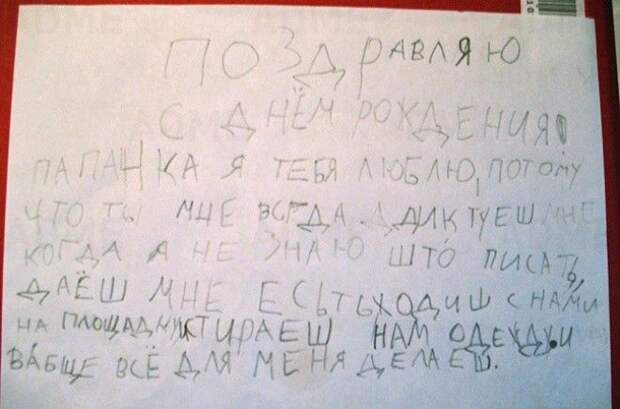 ПОЗДРАВЛЯЮ
С ДНЁМ РОЖДЕНИЯ!
ПАПАНКА Я ТЕБЯ ЛЮБЛЮ, ПОТОМУ
ЧТО ТЫ МНЕ ВСЕГДА ДДИКТУЕШ МНЕ
КОГДА Я НЕ ЗНАЮ ШТО ПИСАТЬ,
ДАЁШ МНЕ ЕСЬТЬ ХОДИШ С НАМИ
НА ПЛОЩАДКУ СТИРАЕШ НАМ ОДЕЖДУ. И
ВАБЩЕ ВСЁ ДЛЯ МЕНЯ ДЕЛАЕШ.